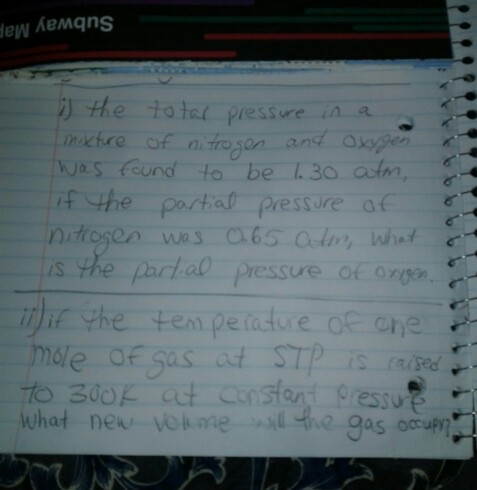 Subway Map
i) the total pressure in a
mixture of nitrogen and oxygen
was found to be 1.30 atm,
if the partial pressure of
nitrogen was 0.65 atm, what
is the partial pressure of oxygen.
ii) if the temperature of one
mole of gas at STP is raised
to 300K at constant pressure
what new volume will the gas occupy